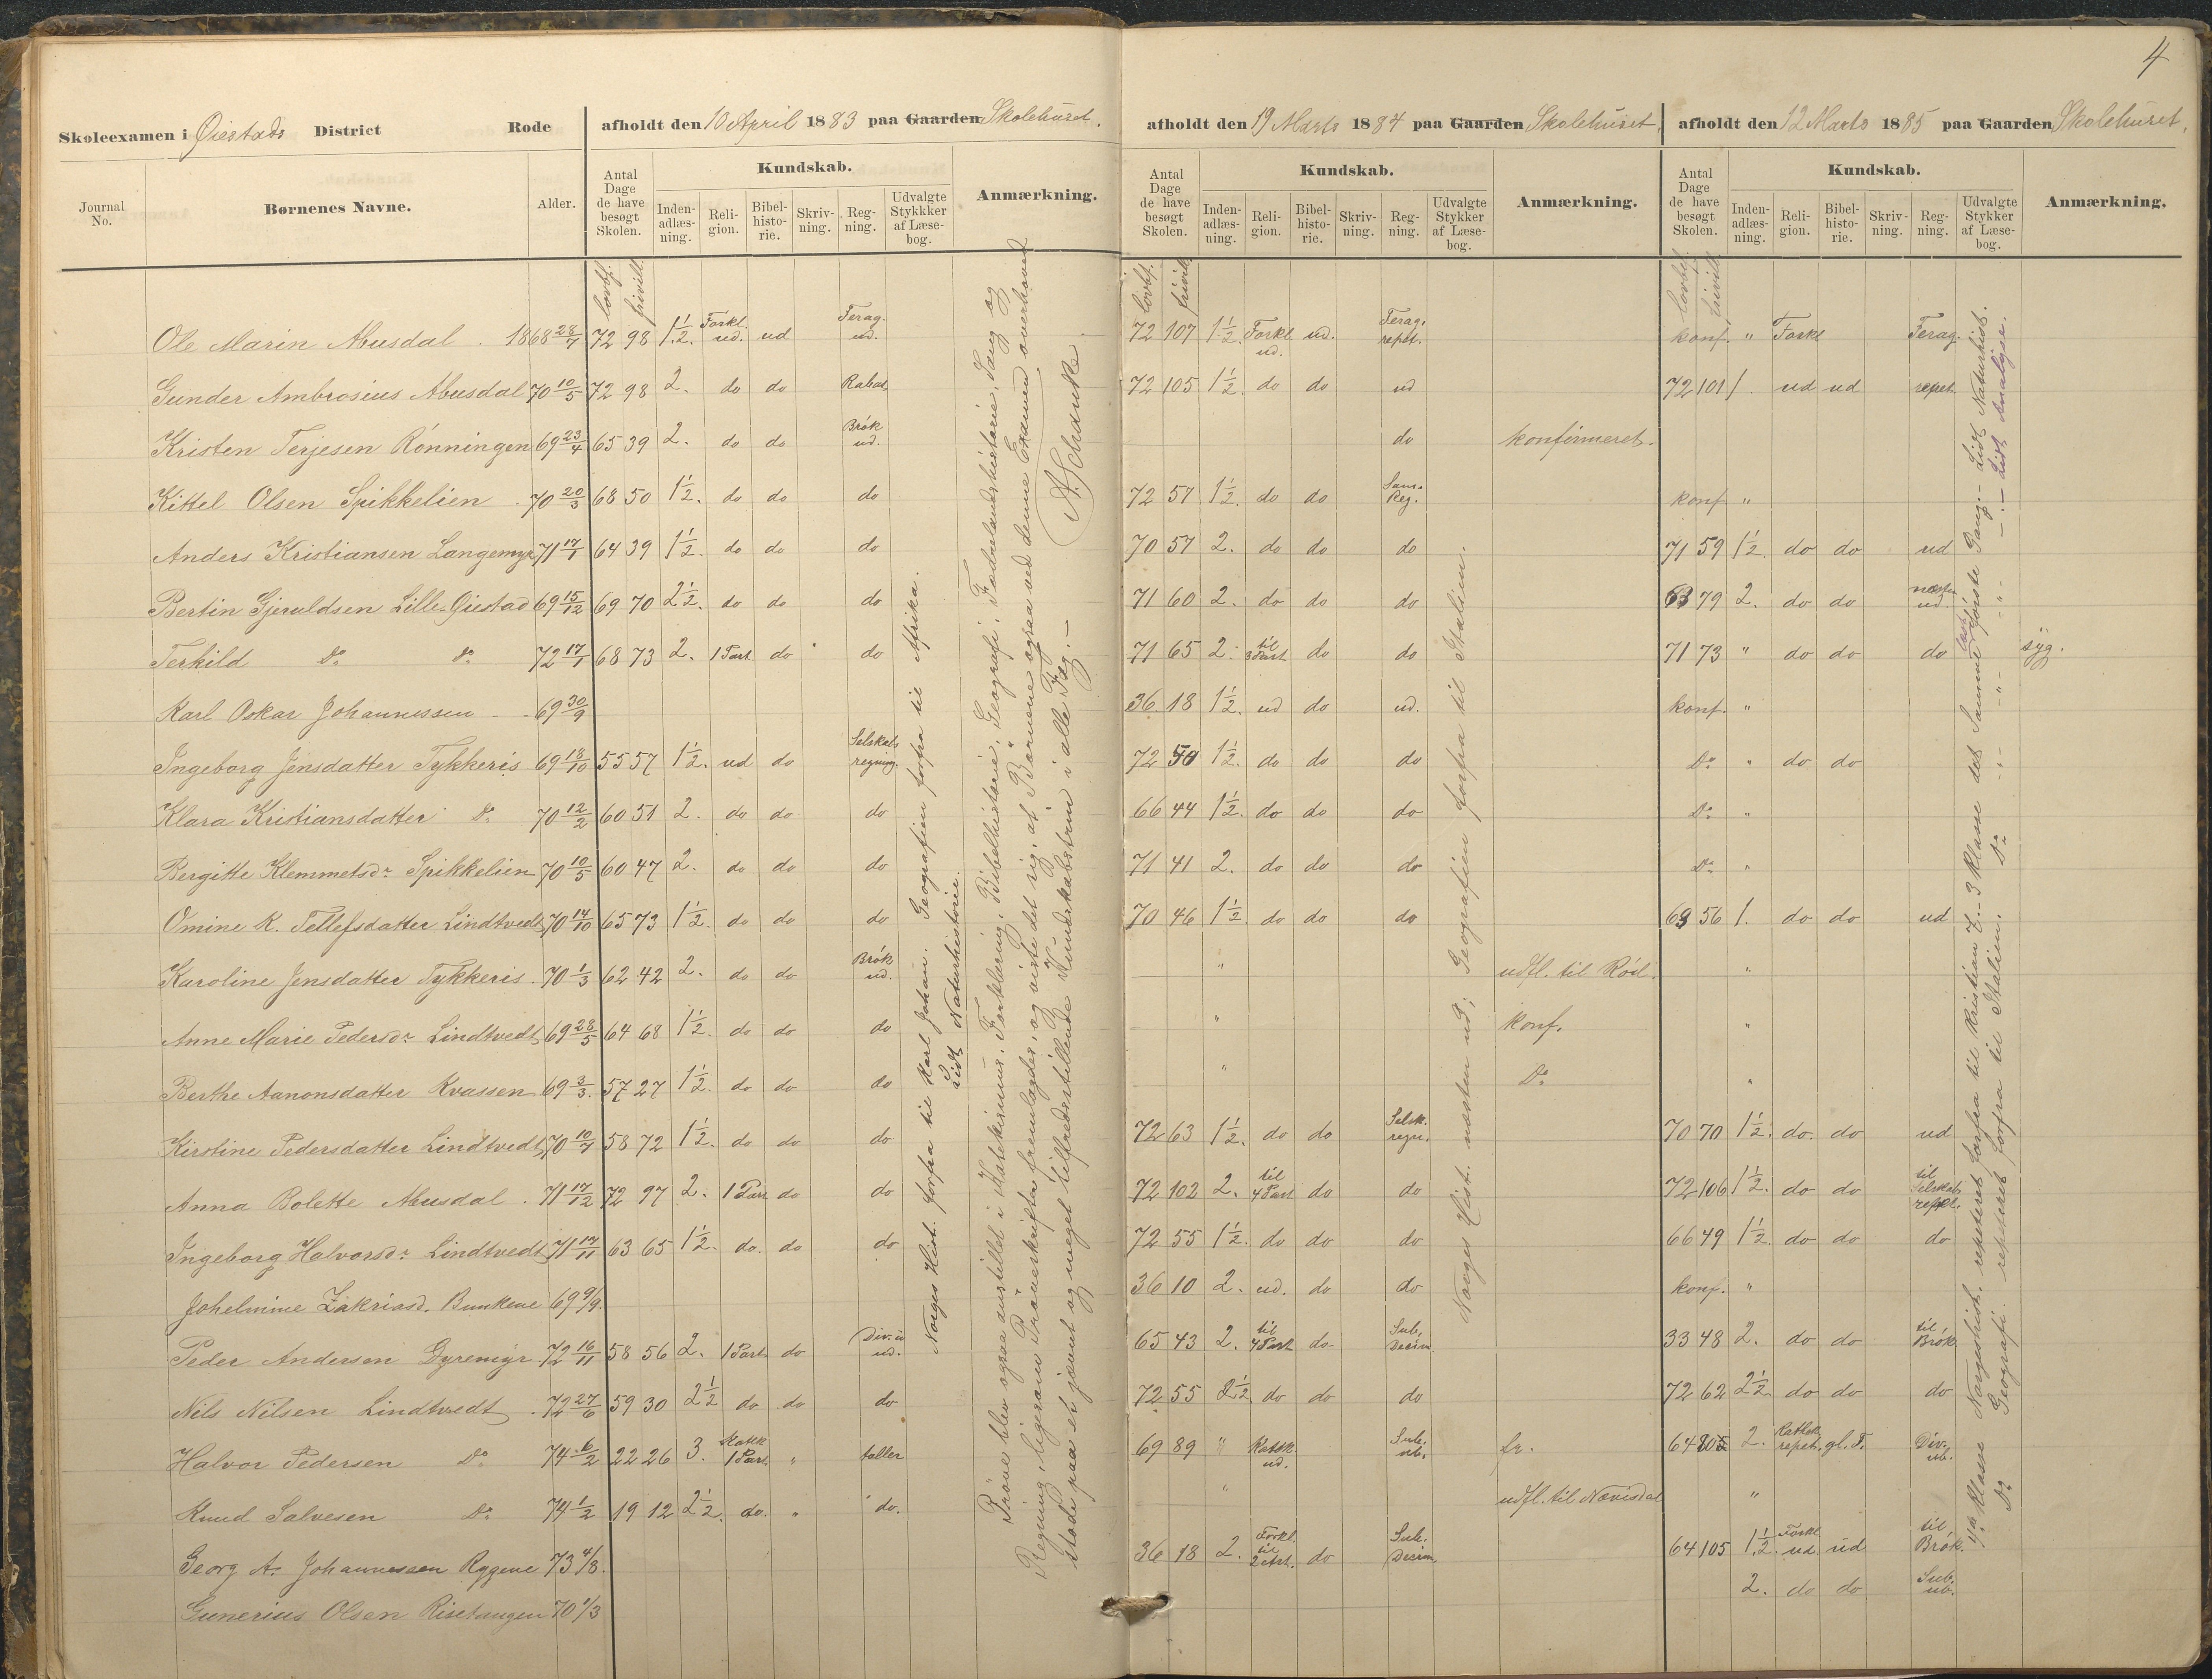 4
Skoleexamen i Øiestads District Rode
afholdt den 10 April 1883 paa Gaarden Skolehuset.
afholdt den 19 Marts 1884 paa Gaarden Skolehuset.
afholdt den 12 Marts 1885 paa Gaarden Skolehuset.
Journal No. Børnenes Navne. Alder. Antal Dage de have besøgt Skolen. Kundskab. Inden-adlæs-ning. Reli-gion. Bibel-histo-rie. Skriv-ning. Reg-ning. Udvalgte Stykkker af Læse-bog. Anmærkning.
Antal Dage de have besøgt Skolen. Kundskab. Inden-adlæs-ning. Reli-gion. Bibel-histo-rie. Skriv-ning. Reg-ning. Udvalgte Stykker af Læse-bog. Anmærkning.
Antal Dage de have besøgt Skolen. Kundskab. Inden-adlæs-ning. Reli-gion. Bibel-histo-rie. Skriv-ning. Reg-ning. Udvalgte Stykker af Læse-bog. Anmærkning.
lovbf. frivill. lovbf. frivill. lovbf. frivill.
Ole Marin Abusdal . 1868 28/7 72 98 1.½. Forkl. ud. ud Ferag. ud. 72 107 1½. Forkl ud. ud. Ferag. repet. konf. " Forkl Ferag.
Gunder Ambrosius Abusdal 70 10/5 72 98 2. do do Rabat 72 105 1½. do do ud 72 101 1. ud ud repet.
Kristen Terjesen Rønningen 69 23/4 65 39 2. do do Brøk ud. do konfirmeret.
Kittel Olsen Spikkelien . 70 20/3 68 50 1½. do do do 72 57 1½. do do Sam. Reg. konf. "
Anders Kristiansen Langemyr 71 17/1 64 39 1½. do do do 70 57 2. do do do 71 59 1½. do do ud
Bertin Gjeruldsen Lille-Øiestad 69 15/12 69 70 2½. do do do 71 60 2. do do do 63 79 2. do do næsten ud.
Terkild Do. Do. 72 17/1 68 73 2. 1 Part. do do 71 65 2. til 3 Part. do do 71 73 " do do do syg.
Karl Oskar Johannessen - 69 30/9 36 18 1½. ud do ud. konf. "
Ingeborg Jensdatter Tykkeris. 69 18/10 55 57 1½. ud do Selskabs regning. 72 50 1½. do do do Do. " do do
Klara Kristiansdatter Do. 70 12/2 60 51 2. do do do 66 44 1½. do do do Do. "
Bergitte Klemmetsdr. Spikkelien 70 10/5 60 47 2. do do do 71 41 2. do do do Do. "
Omine K. Tellefsdatter Lindtvedt 70 14/10 65 73 1½. do do do 70 46 1½. do do do 69 56 1. do do ud
Karoline Jensdatter Tykkeris. 70 1/3 62 42 2. do do Brøk ud. " udfl. til Röil. "
Anne Marie Pedersdr. Lindtvedt 69 28/5 64 68 1½. do do do " konf. "
Berthe Aanonsdatter Kvassen 69 3/3. 57 27 1½. do do do " Do. "
Kirstine Pedersdatter Lindtvedt 70 10/7 58 72 1½. do do do 72 63 1½. do do Selsk. regn. 70 70 1½. do. do ud
Anna Bolette Abusdal . 71 17/12 72 97 2. 1 Part do do 72 102 2. til 4 Part do do 72 106 1½. do do til Selskab repet.
Ingeborg Halvorsdr. Lindtvedt 71 17/11 63 65 1½. do. do do 72 55 1½. do do do 66 49 1½. do do do
Johelmine Zakriasd. Bunkene 69 9/9. 36 10 2. ud. do do konf. "
Peder Andersen Gyremyr 72 16/11 58 56 2. 1 Part do Div. ud. 65 43 2. til 4 Part do Sub. Decim 33 48 2. do do til Brøk
Nils Nilsen Lindtvedt . 72 27/6 59 30 2½ do do do 72 55 2½ do do do 72 62 2½ do do do
Halvor Pedersen Do. 74 6/2 22 26 3. Katek 1 Part " taller 69 89 " Katek ud. Sub. ub. fr. 64 105 2. Kathek repet. gl. T. Div. ub.
Knud Salvesen Do. 74 1/2 19 12 2½. do. " do. " udfl. til Nævisdal "
Georg A. Johannessen Ryggene 73 4/8. 36 18 2. Forkl. til 2 Art. do Sub. Decim. 64 105 1½. Forkl ud. ud til Brøk.
Gunerius Olsen Risetangen 70 1/3 2. do do Sub. ub.
Norges Hist. forfra til Karl Johan. Geografien forfra til Afrika.
Lidt Naturhistorie.
Prøve blev ogsaa anstillet i Katekismus, Forklaring, Bibelhistorie, Geografi, Fædrelandshistorie, Sang og
Regning, ligesom Prøveskrifter fremlagdes, og viste det sig, at Børnene ogsaa ved denne Examen overhoved
stode paa et jævnt og meget tilfredsstillende Kundskabstrin i alle Fag. —
A. Schanke
Norges Hist. næsten ud; Geografien forfra til Italien.
4de Klasse Norgeshist. repeteret forfra til Kristian 7. — 3 Klasse det Samme læst første Gang. — Lidt Naturhist.
Do. Geografi. repeteret forfra til Italien. Do. — " — — " — — . — Lidt Analyse.